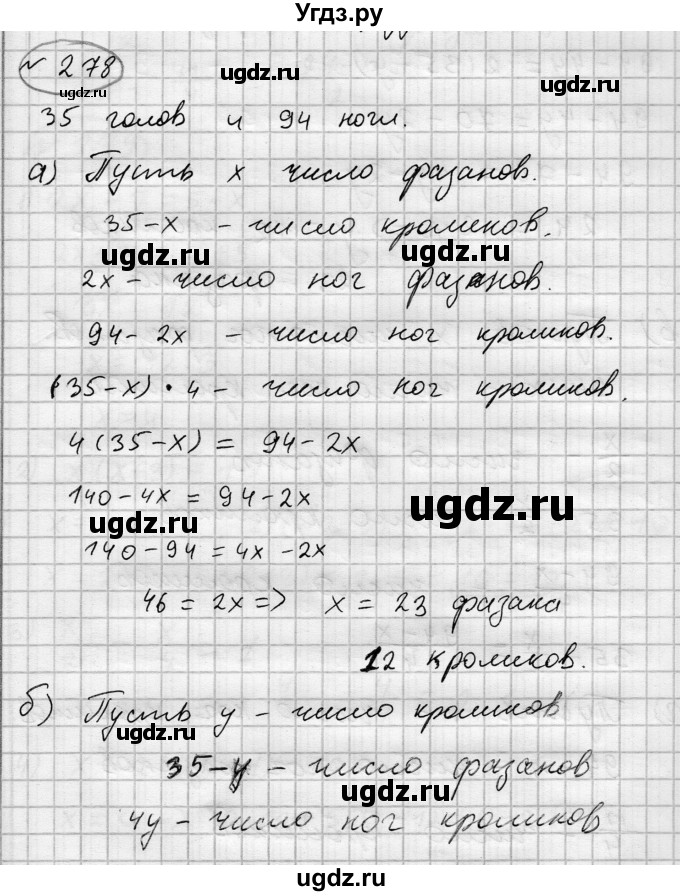 Угдз.ру
№ 278
ugdz.ru
ugdz.ru
ugdz.ru
35 голов и 94 ноги.
а) Пусть x число фазанов.
35-x - число кроликов.
ugdz.ru
ugdz.ru
2x - число ног фазанов.
94-2x - число ног кроликов.
(35-x)·4 - число ног кроликов.
4(35-x) = 94-2x
140-4x = 94-2x
ugdz.ru
ugdz.ru
140-94 = 4x-2x
46 = 2x => x = 23 фазана
12 кроликов.
б) Пусть y - число кроликов
ugdz.ru
35-y - число фазанов
ugdz.ru
4y - число ног кроликов